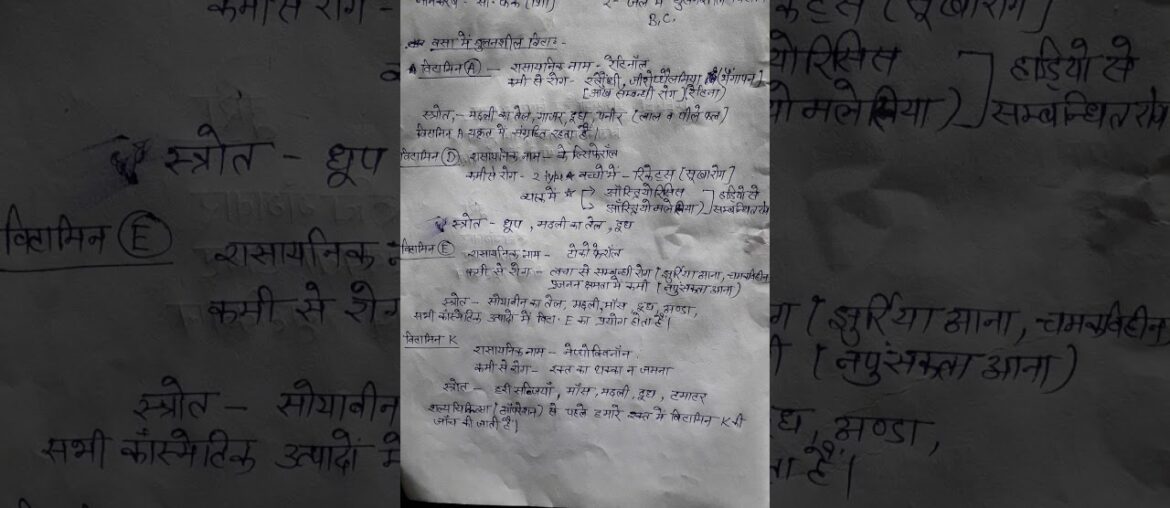 वसा में घुलनशील विटा॰ -
विटामिन (A) - रासायनिक नाम - रेटिनॉल
कमी से रोग - रतौंधी, जीरोप्थैलमिया
[आँख सम्बन्धी रोग]
स्त्रोत - मछली का तेल, गाजर, दूध, पनीर [लाल व पीले फल]
विटामिन A यकृत में संग्रहित रहता है।
विटामिन (D) रासायनिक नाम - केल्सिफेरॉल
कमी से रोग - 2 type बच्चों में - रिकेट्स [सूखा रोग]
व्यस्क में
हड्डियों से
सम्बन्धित रोग
स्त्रोत - धूप, मछली का तेल, दूध
विटामिन (E) रासायनिक नाम - टोकोफेरॉल
कमी से रोग - त्वचा से सम्बन्धी रोग [झुर्रिया आना, चमकविहीन
प्रजनन क्षमता में कमी [नपुंसकता आना)
स्त्रोत - सोयाबीन का तेल, मछली, माँस, दूध, अण्डा,
सभी कॉस्मेटिक उत्पादों में विटा॰ E का प्रयोग होता है।
विटामिन K
रासायनिक नाम - नेप्थोक्विनॉन
कमी से रोग - रक्त का थक्का न जमना
स्त्रोत - हरी सब्जियाँ, माँस, मछली, दूध, टमाटर
शल्य चिकित्सा (ऑपरेशन) से पहले हमारे रक्त में विटामिन K की
जाँच की जाती है।